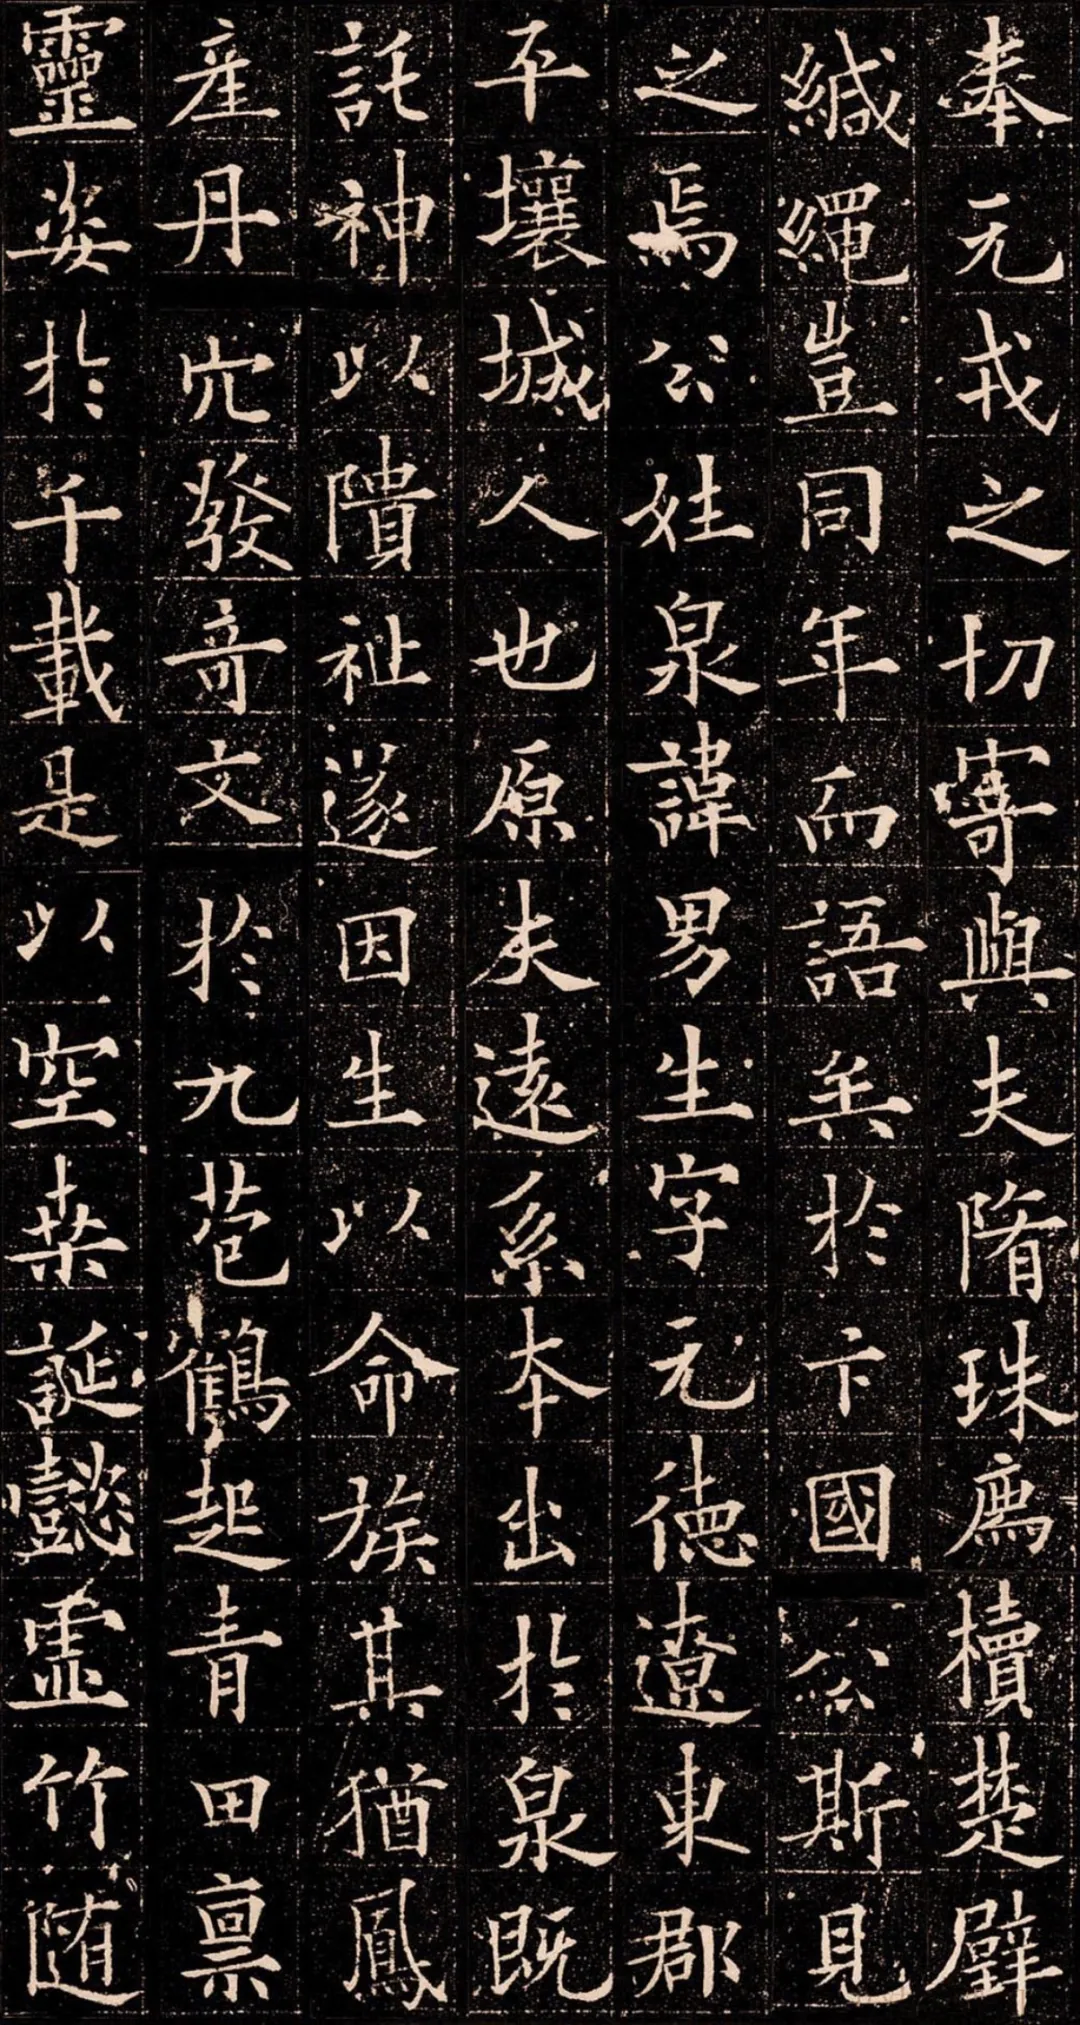 奉元戎之切寄與夫隋珠廌櫝楚璧
緘繩豈同年而語矣於卞國公斯見
之焉公姓泉諱男生字元德遼東郡
平壤城人也原夫遠系本出於泉既
託神以隤祉遂因生以命族其猶鳳
產丹穴發奇文於九苞鶴起青田稟
靈姿於千載是以空桑誕懿虛竹隨